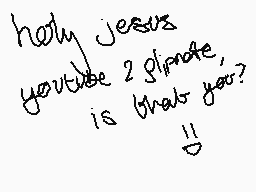 holy jesus
youtube 2 flipnote,
is that you?